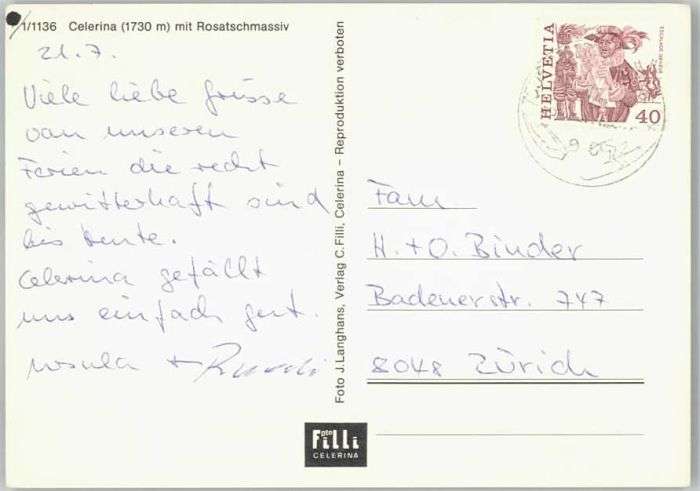 1/1136 Celerina (1730 m) mit Rosatschmassiv
21.7.
Viele liebe Grüsse
von unseren
Ferien die recht
gewitterhaft sind
bis heute.
Celerina gefällt
uns einfach gut.
Ursula + Ruedi
Foto J. Langhans, Verlag C. Filli, Celerina – Reproduktion verboten
HELVETIA
40
Fam
H. + O. Binder
Badenerstr. 747
8048 Zürich
Foto
Filli
CELERINA